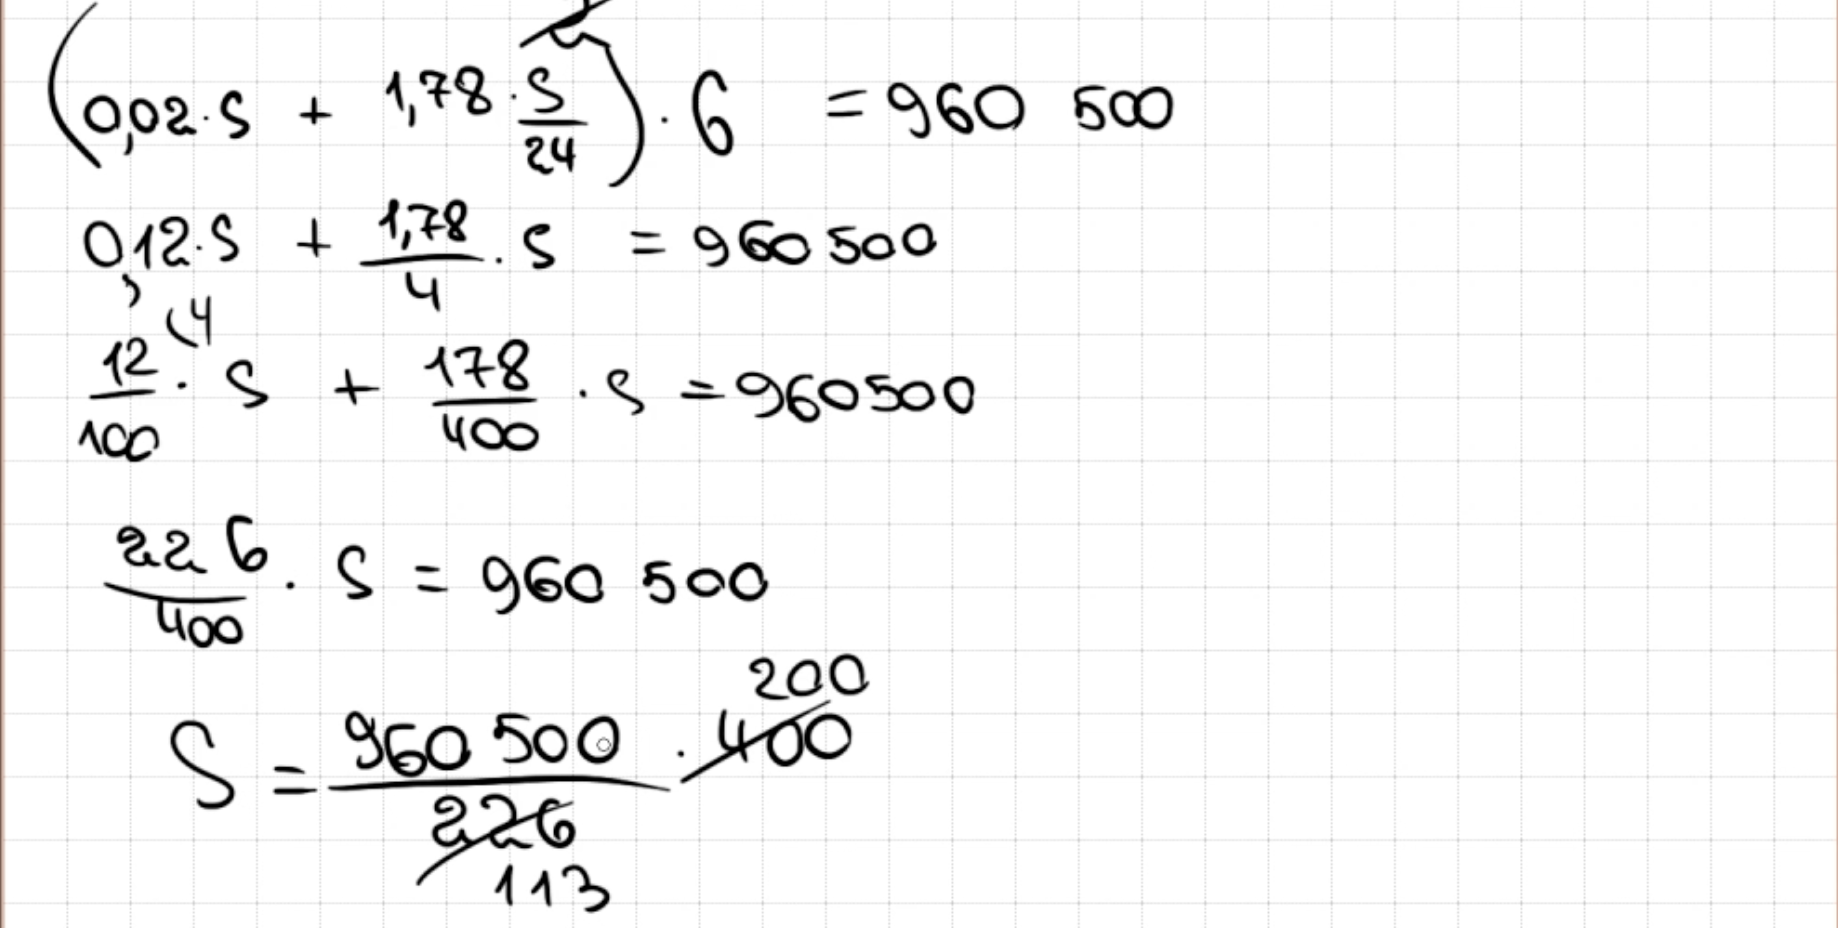 (0,02·S + 1,78·S/24)·6 = 960 500
0,12·S + 1,78/4·S = 960 500
12/100 (4 · S + 178/400 · S = 960500
226/400 · S = 960 500
200
S = 960 500/226 · 400
113